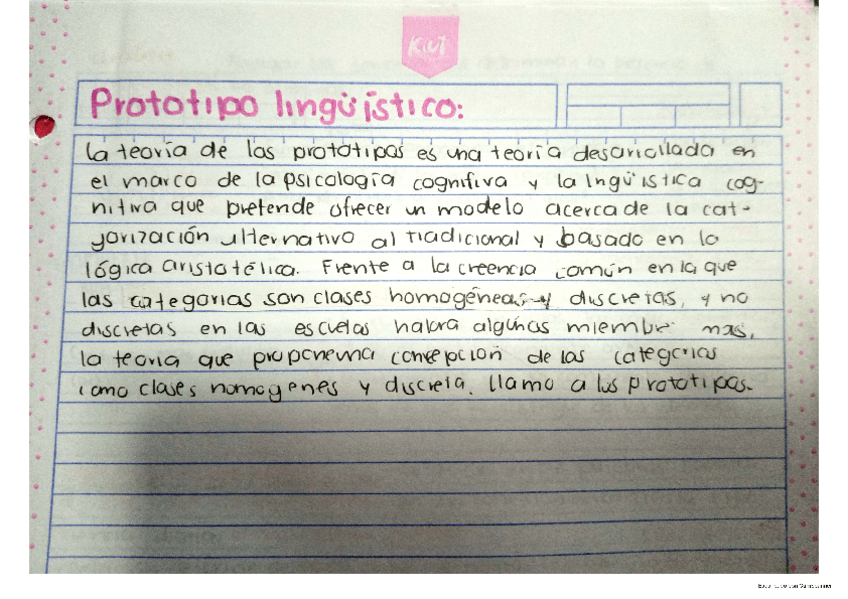 Kiut
Prototipo lingüístico:
La teoría de los prototipos es una teoría desarrollada en
el marco de la psicología cognitiva y la lngüistica cog-
nitiva que pretende ofrecer un modelo acerca de la cat-
gorización alternativo al tradicional y basado en la
lógica aristotélica. Frente a la creencia común en la que
las categorias son clases homogéneas y discretas, y no
discretas en las escuelas habra algunas miembr mas,
la teoria que proponema concepcion de las categorias
como clases homogenes y discreta. llamo a los prototipos.